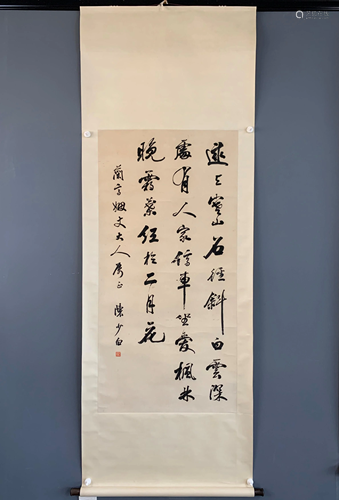 遠上寒山石徑斜白雲深
處有人家停車坐愛楓林
晚霜葉紅於二月花
蘭丈大人屬正 陳少白